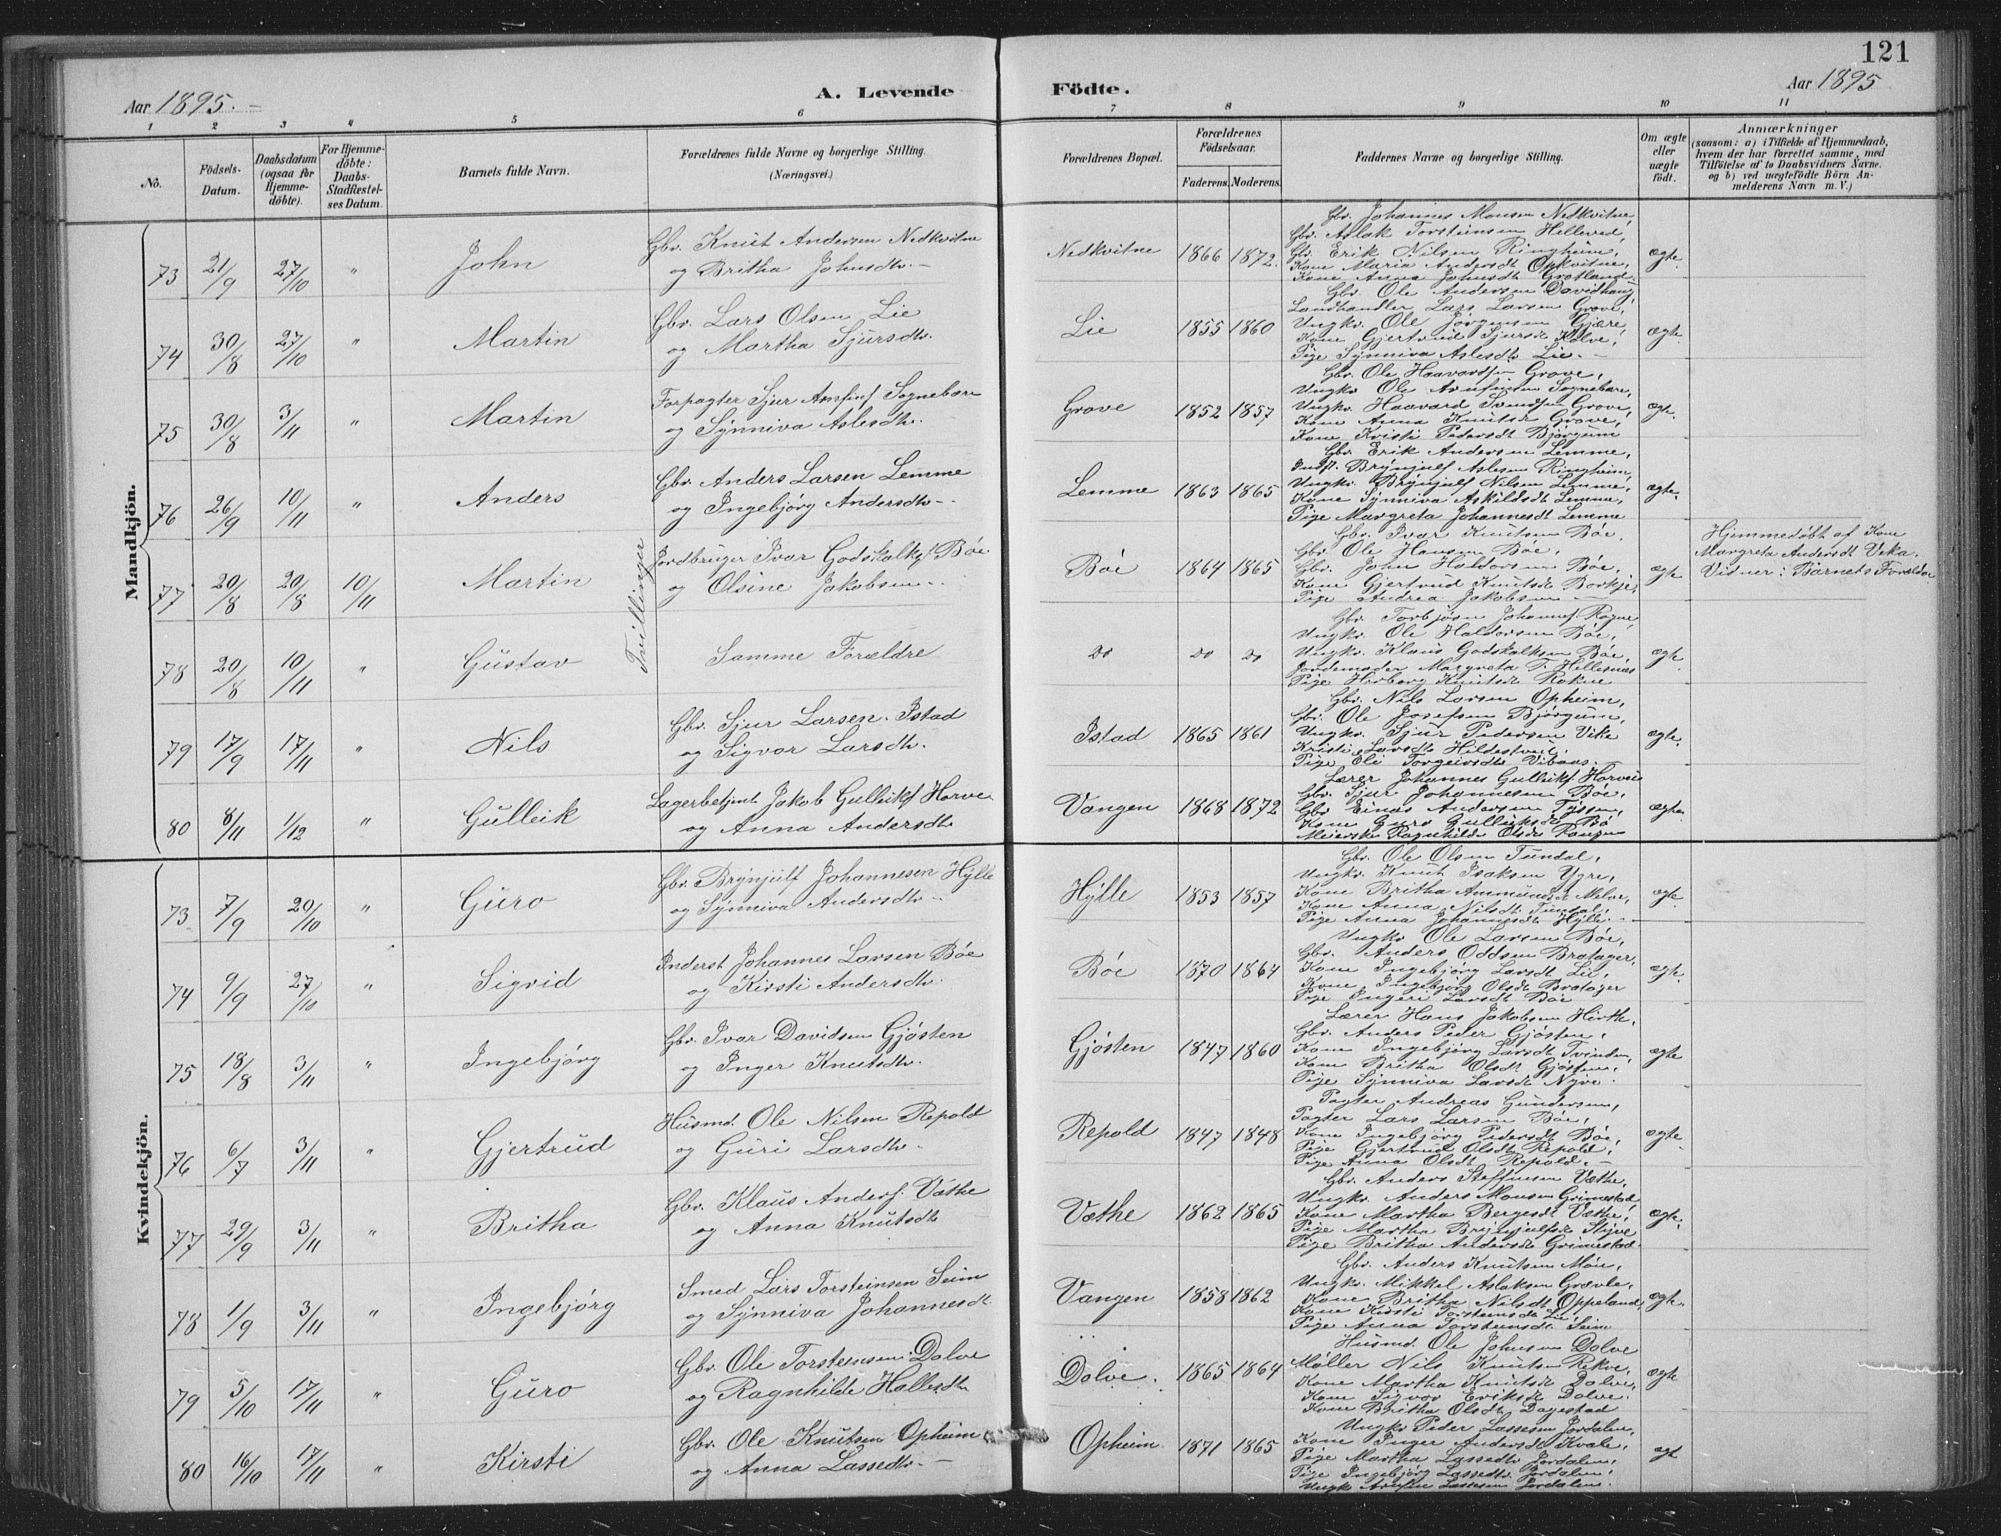 121
Aar 1895.
A. Levende Födte.
Aar 1895
1 2 3 4 5 6 7 8 9 10 11
No.
Födsels-Datum.
Daabsdatum (ogsaa for Hjemme-döbte).
For Hjemme-döbte: Daabs-Stadfæstel-ses Datum.
Barnets fulde Navn.
Forældrenes fulde Navne og borgerlige Stilling.
(Næringsvei.)
Forældrenes Bopæl.
Forældrenes Födselsaar.
Faderens. Moderens.
Faddernes Navne og borgerlige Stilling.
Om ægte eller uægte födt.
Anmærkninger
(saasom: a) i Tilfælde af Hjemmedaab,
hvem der har forrettet samme, med
Tilföielse af to Daabsvidners Navne.
og b) ved uægtefödte Börn An-
melderens Navn m. V.)
Mandkjön.
73 21/9 27/10 " John
Gbr. Knut Andersen Nedkvitne
og Britha Johnsdtr.
Nedkvitne 1866 1872 ægte
Gbr. Johannes Monsen Nedkvitne,
Gbr. Aslak Torsteinsen Helleved,
Gbr. Erik Nilsen Ringheim,
Kone Maria Andersdt Opkvitne,
Kone Anna Johnsdt Grotland
74 30/8 27/10 " Martin
Gbr. Lars Olsen Lie
og Martha Sjursdtr.
Lie 1855 1860 ægte
Gbr. Ole Andersen Davidhaug,
Landhandler Lars Larsen Grove,
Ungkr. Ole Jørgensen Gjære,
Kone Gjertrud Sjursdt Kolve,
Pige Synniva Aslesdt Lie.
75 30/8 3/11 " Martin
Forpagter Sjur Arnfins. Sognebære
og Synniva Aslesdtr.
Grove 1852 1857 ægte.
Gbr. Ole Haavardsen Grove,
Ungkr. Ole Arnfinsen Sognebære,
Ungkr. Haavard Svendsen Grove,
Kone Anna Knutsdt Grove,
Kone Kristi Pedersdt Bjørgum
76 26/9 10/11 " Anders
Gbr. Anders Larsen Lemme
og Ingebjørg Andersdtr.
Lemme 1863 1865 ægte.
Gbr. Erik Andersen Lemme,
Indst. Brynjulf Aslesen Ringheim,
Ungkr. Brynjulf Nilsen Lemme,
Kone Synniva Askildsdt Lemme,
Pige Margreta Johannesdt Lemme
77 20/8 20/8 10/11 Martin
Tvillinger
Jordbruger Ivar Godskalks. Bøe
og Olsine Jakobsen
Bøe 1864 1865 ægte
Gbr. Ivar Knutsen Bøe,
Gbr. Ole Hansen Bøe,
Gbr. John Haldorsen Bøe,
Kone Gjertrud Knutsdt Borkje,
Pige Andrea Jakobsen
Hjemmedøbt af Kone
Margreta Andersdt Veka.
Vidner: Barnets Forældre
78 20/8 10/11 " Gustav
Samme Forældre
do do do ægte.
Gbr. Torbjørn Johannes. Rogne,
Ungkr. Ole Haldorsen Bøe,
Ungkr. Klaus Godskalksen Bøe,
Jordemoder Margreta T. Hillesnæs
Pige Herborg Knutsdt Rokne
79 17/9 17/11 " Nils
Gbr. Sjur Larsen Istad
og Sigvor Larsdtr.
Istad 1865 1861 ægte.
Gbr. Nils Larsen Opheim,
Gbr. Ole Josefsen Bjørgum,
Ungkr. Sjur Pedersen Vike
Kristi Larsdt Hildestveit,
Pige Eli Torgeirsdt Vibaas.
80 8/11 1/12 " Gulleik
Lagerbetjent Jakob Gulleiks. Horve
og Anna Andersdtr
Vangen 1868 1872 ægte.
Lærer Johannes Gulleiks. Horve
Gbr. Sjur Johannesen Bøe,
Gbr. Einar Andersen Tyssen,
Kone Guro Gulleiksdt Bø
Meierske Ragnhilde Olsdt Vangen
Kvindekjön.
73 7/9 20/10 " Guro
Gbr. Brynjulf Johannesen Hylle
og Synniva Andersdtr.
Hylle 1853 1857 ægte
Gbr. Ole Olsen Tundal,
Ungkr. Knut Isaksen Ygre,
Kone Britha Ammundsdt Melve,
Kone Anna Nilsdt Tundal,
Pige Anna Johannesdt Hylle.
74 9/9 27/10 " Sigrid
Inderst Johannes Larsen Bøe
og Kirsti Andersdtr.
Bøe 1870 1864 ægte.
Ungkr. Ole Larsen Bøe,
Gbr. Anders Oddsen Bratager,
Kone Ingebjørg Larsdt Lie,
Kone Ingebjørg Olsdt Bratager
Pige Ingeri Larsdt Bøe
75 18/8 3/11 " Ingebjørg
Gbr. Ivar Davidsen Gjøsten
og Inger Knutsdtr.
Gjøsten 1847 1860 ægte
Lærer Hans Jakobsen Hirth,
Gbr. Anders Peder Gjøsten,
Kone Ingebjørg Larsdt Tvinden,
Kone Britha Olsdt Gjøsten,
Pige Synniva Larsdt Nyre.
76 6/7 3/11 " Gjertrud
Husmd. Ole Nilsen Repold
og Guri Larsdtr.
Repold 1847 1848 ægte
Pagter Andreas Gundersen,
Pagter Lars Larsen Bøe,
Kone Ingebjørg Pedersdt Bøe,
Pige Gjertrud Olsdt Repold,
Pige Anna Olsdt Repold.
77 29/9 3/11 " Britha
Gbr. Klaus Anders. Væthe
og Anna Knutsdtr
Væthe 1862 1865 ægte.
Gbr. Anders Steffensen Væthe,
Ungkr. Anders Monsen Grimestad
Kone Martha Bergesdt Væthe,
Pige Martha Brynjulfsdt Styve
Pige Britha Andersdt Grimestad.
78 1/9 3/11 " Ingebjørg
Smed Lars Torsteinsen Seim
og Synniva Johannesdt.
Vangen 1858 1862 ægte.
Gbr. Anders Knutsen Møn,
Ungkr. Mikkel Aslaksen Grævle,
Kone Britha Nilsdt Oppeland,
Kone Kirsti Torsteinsdt Lie
Pige Anna Torsteinsdt Seim
79 5/10 17/11 " Guro
Gbr. Ole Torsteinsen Dolve
og Ragnhilde Hallesdtr
Dolve. 1865 1864 ægte
Husmd. Ole Johnsen Dolve
Møller Nils Knutsen Rekve,
Kone Martha Knutsdt Dolve,
Kone Sigvor Eriksdt Dolve
Kone Britha Olsdt Dagestad
80 16/10 17/11 " Kirsti
Gbr. Ole Knutsen Opheim
og Anna Lassedtr.
Opheim 1871 1865 ægt
Ungkr Peder Lassesen Jordalen,
Kone Inger Andersdt Kvale,
Pige Martha Lassedt Jordalen,
Pige Ingebjørg Lassedt Jordalen,
Ungkr Arnfin Lassesen Jordalen.